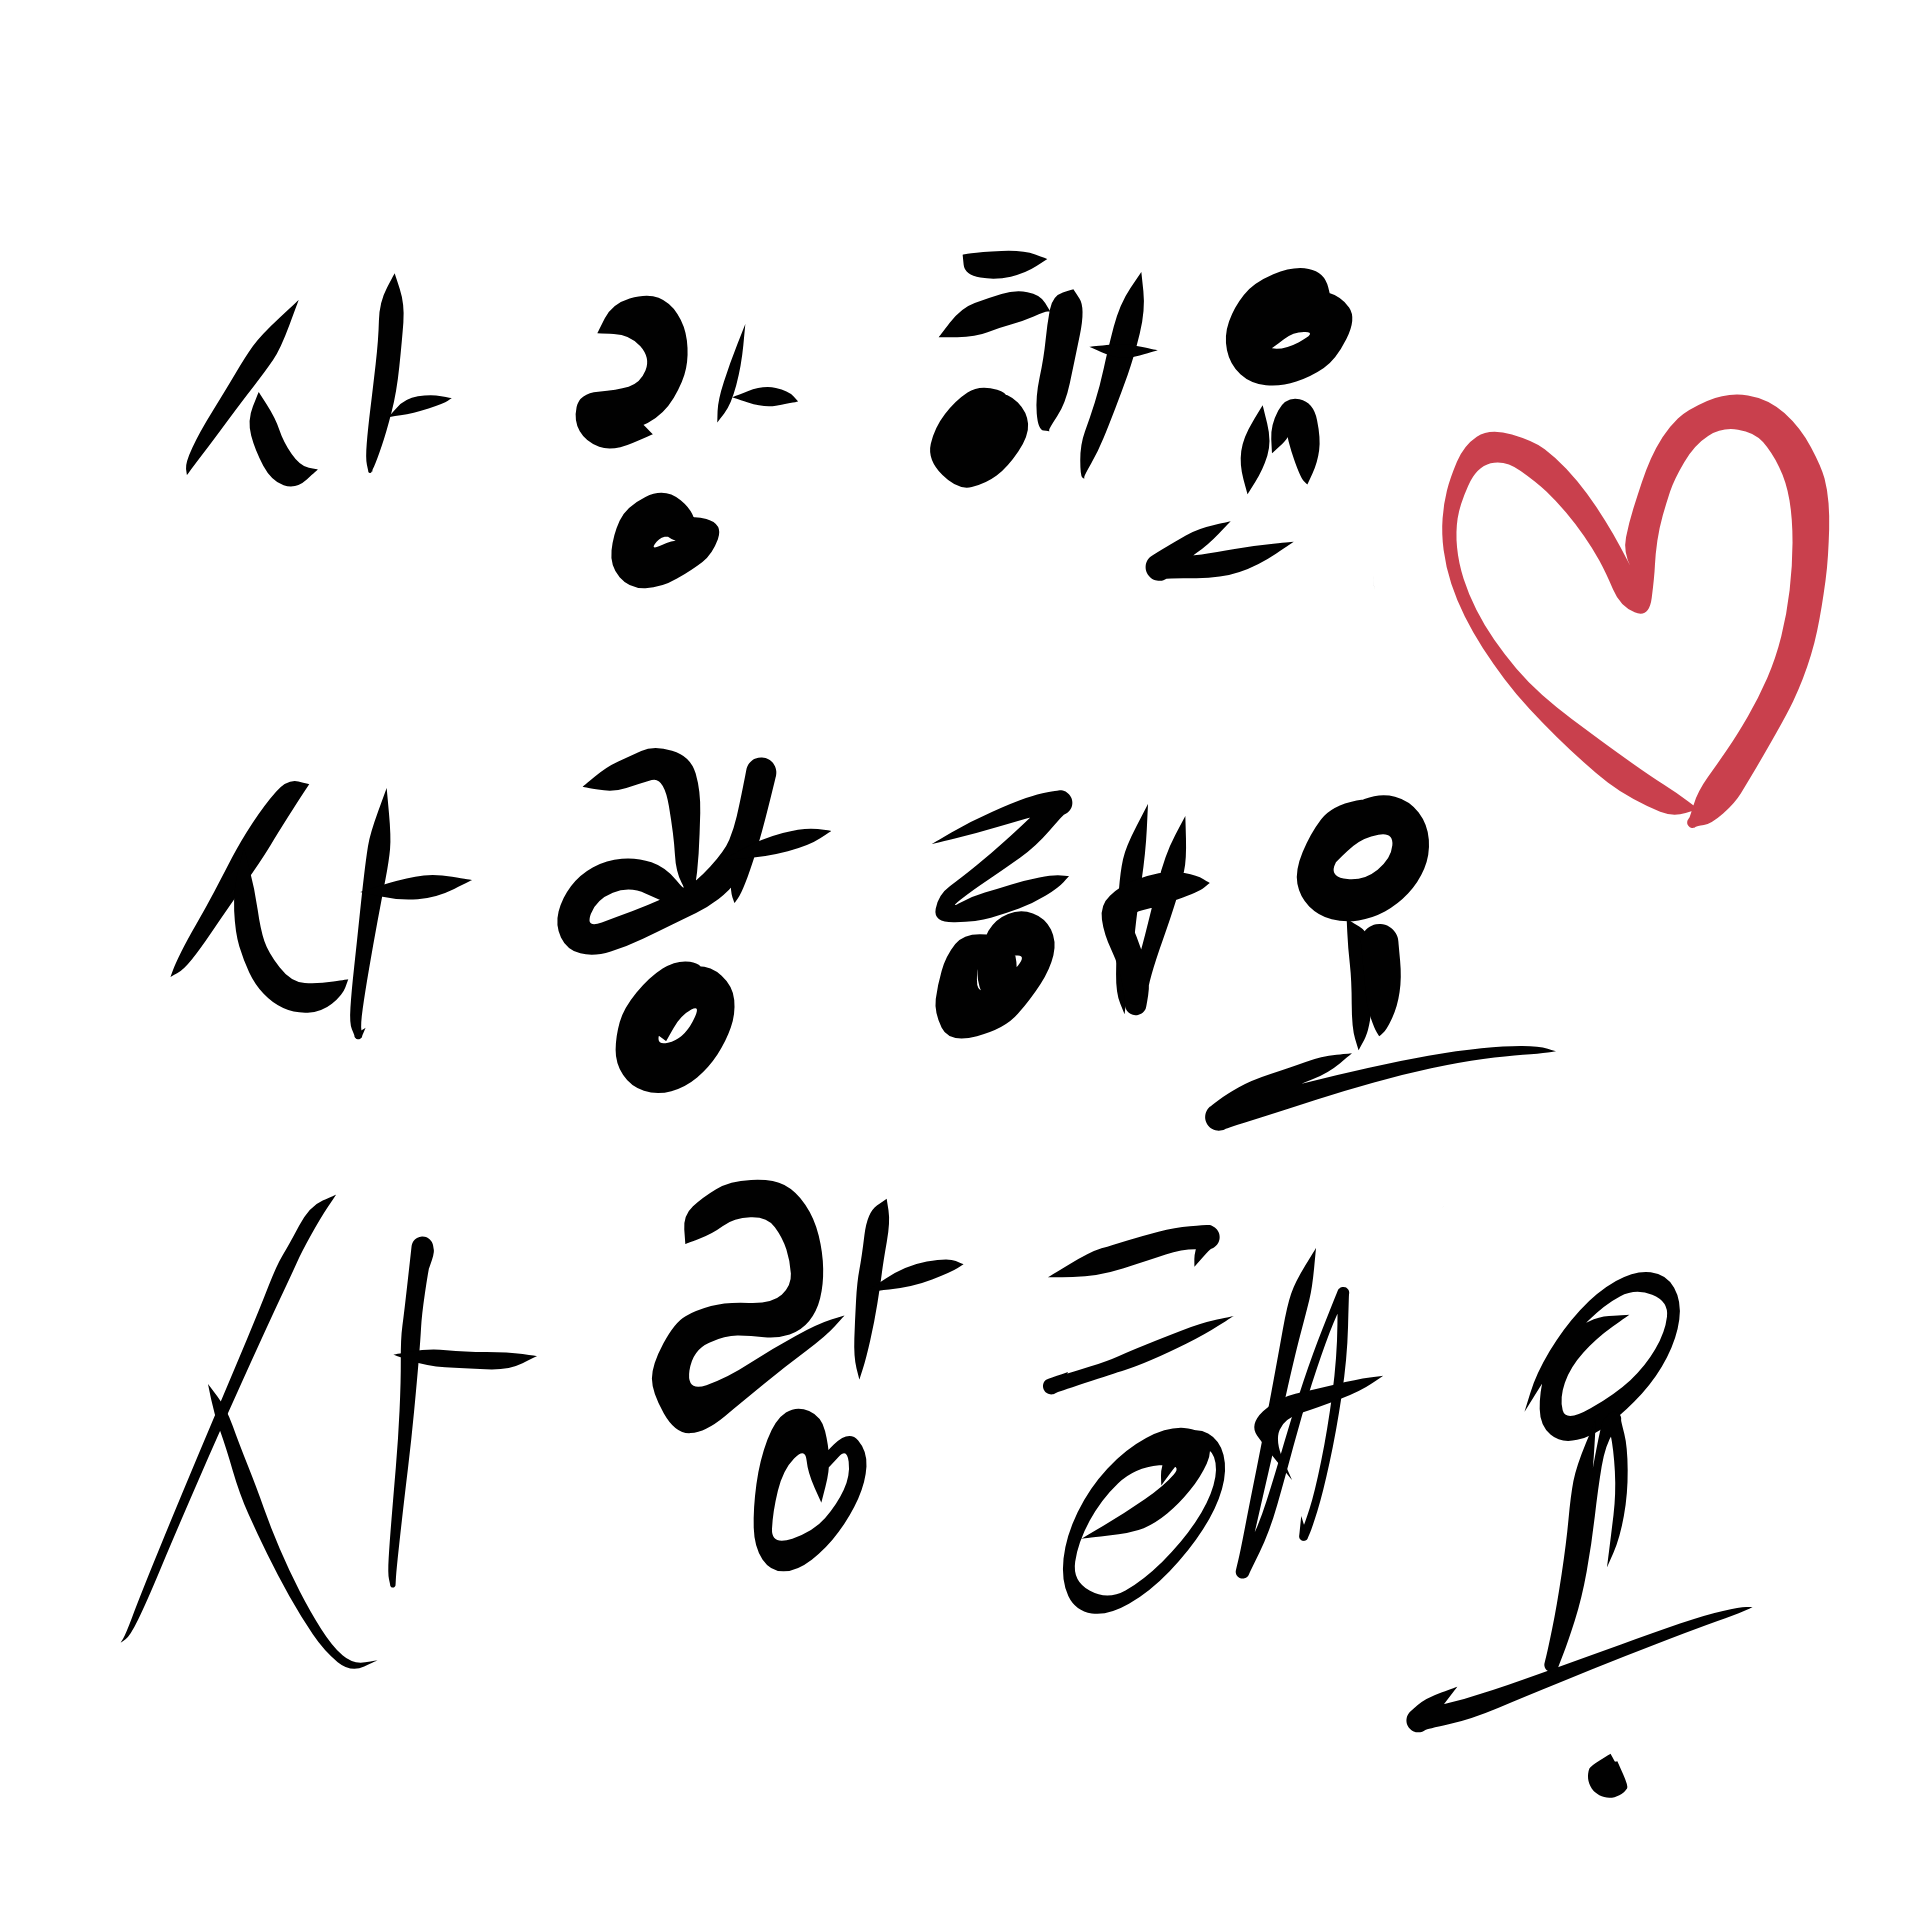 사랑해요
사랑해요
사랑해요.